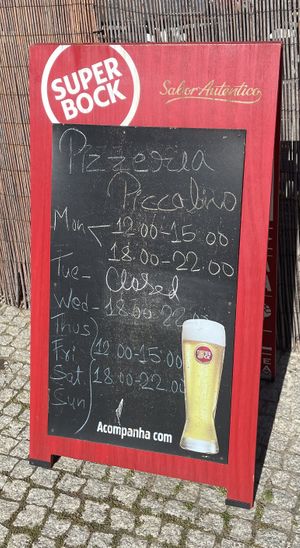 SUPER
BOCK
Sabor Autêntico
Pizzeria
Piccolino
Mon 12.00-15.00
18.00-22.00
Tue- Closed
Wed- 18.00-22.00
Thus
Fri 12.00-15.00
Sat 18.00-22.00
Sun
SUPER
BOCK
Acompanha com